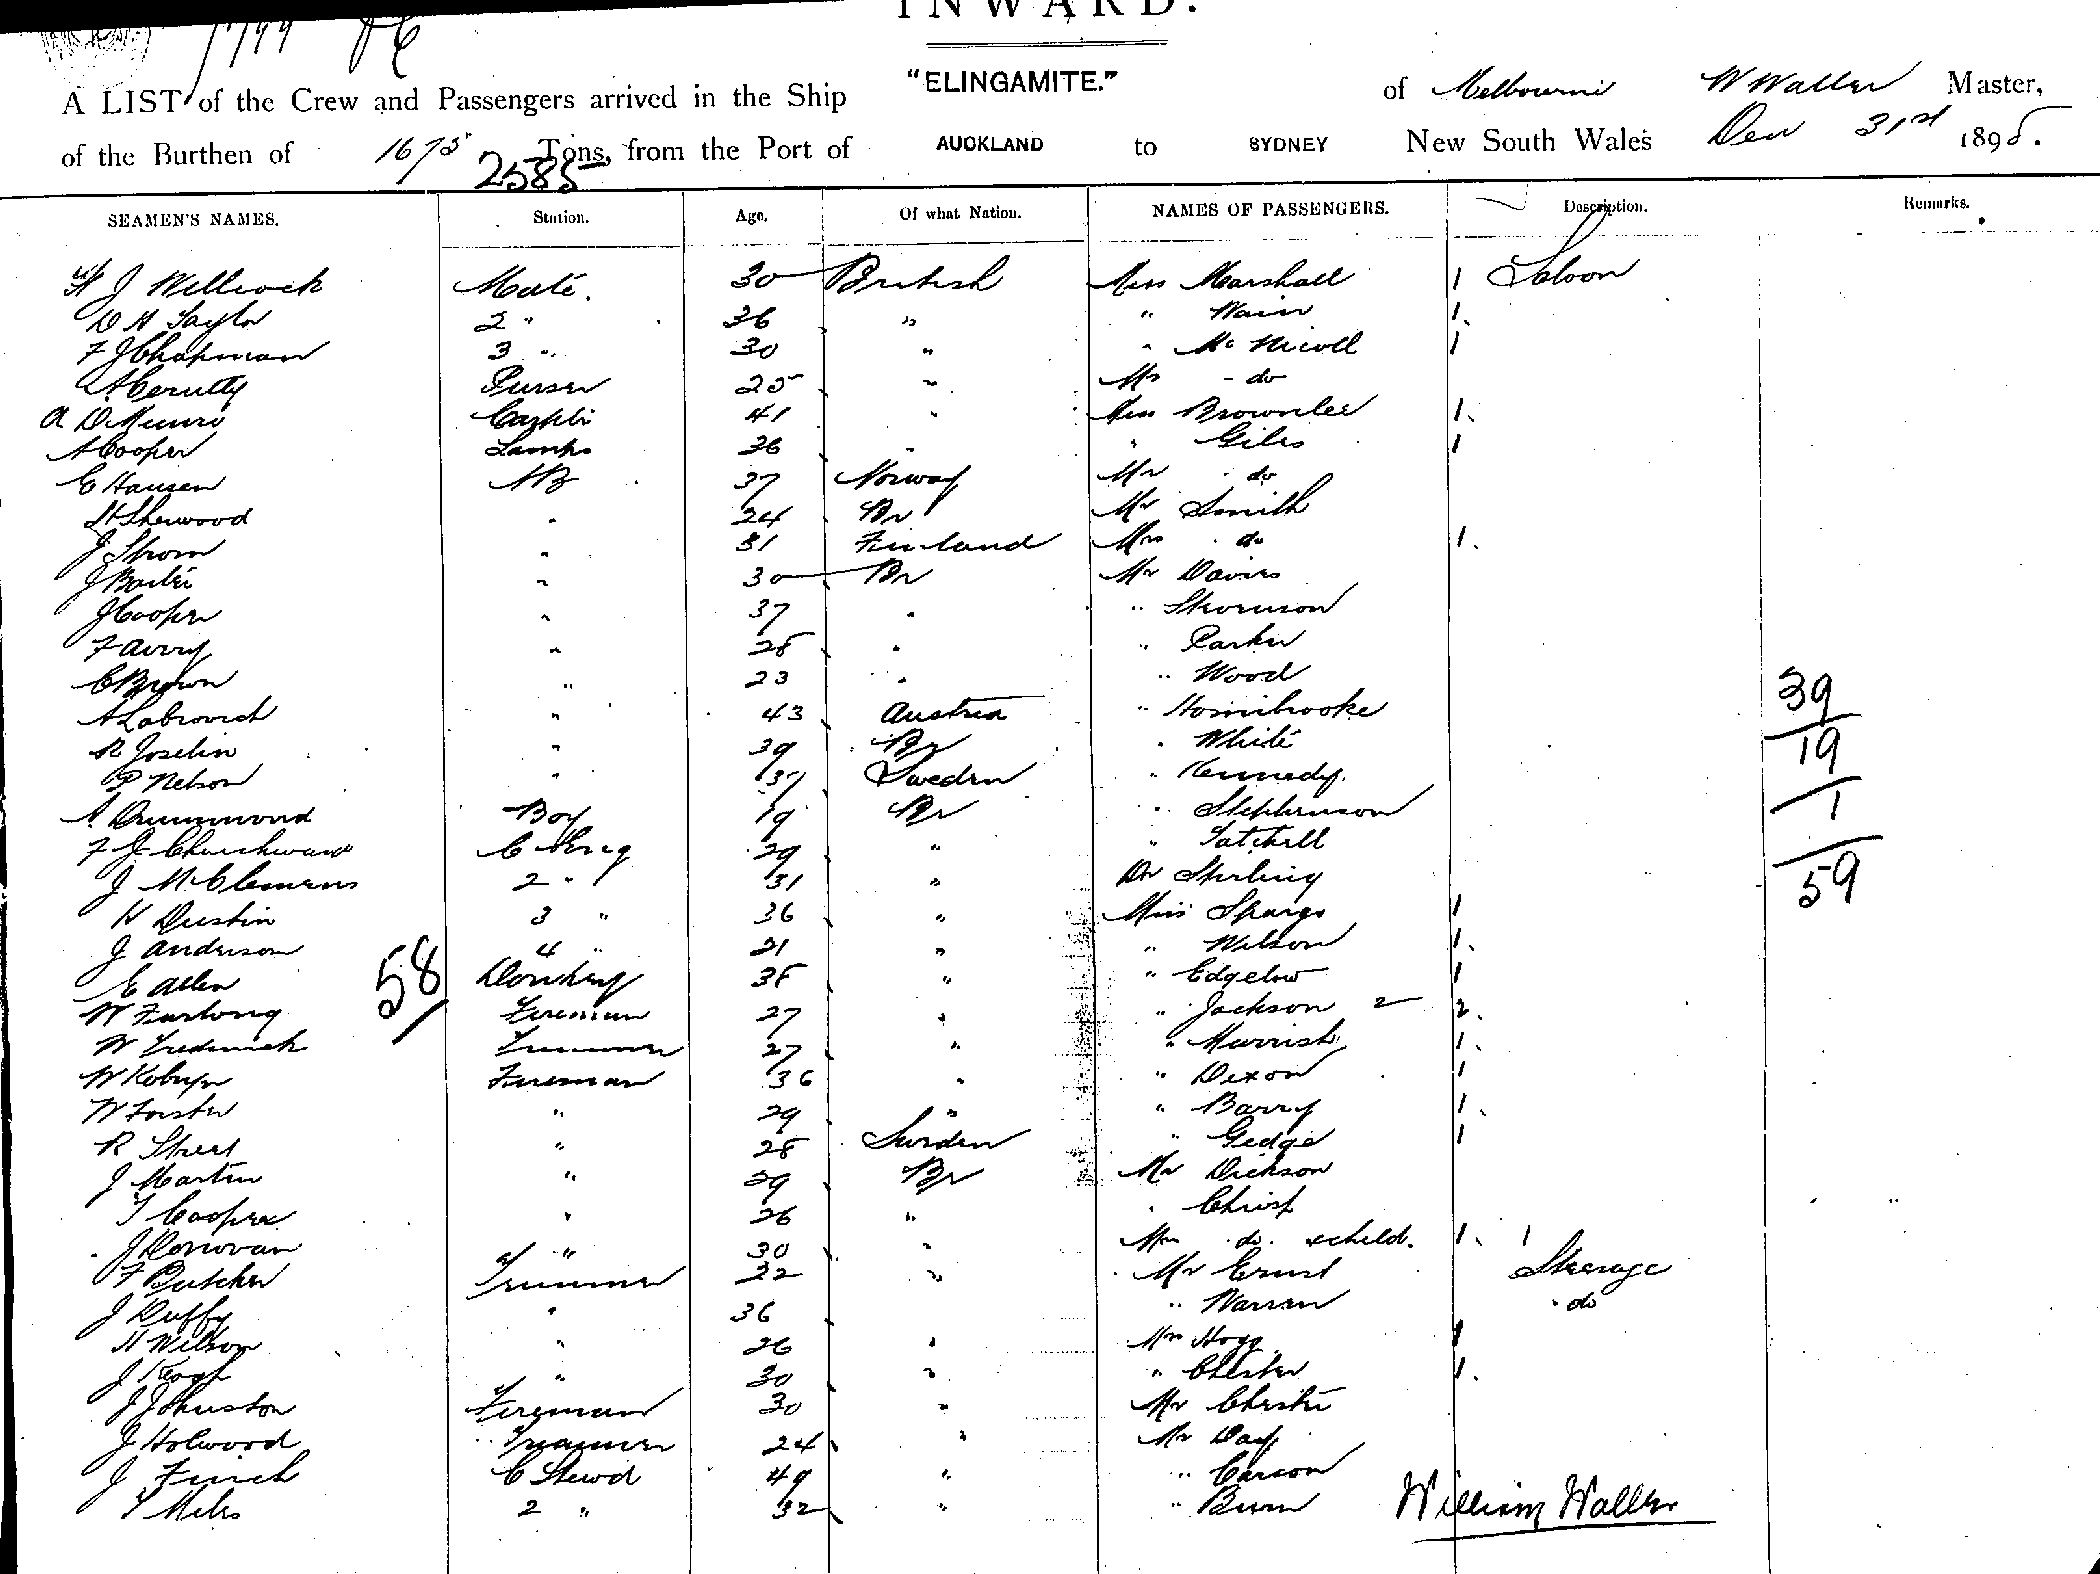 INWARD.
A LIST of the Crew and Passengers arrived in the Ship "ELINGAMITE." of Melbourne W Waller Master,
of the Burthen of 1675 Tons, from the Port of AUCKLAND to SYDNEY New South Wales Decr 31st 1895.
2585
SEAMEN'S NAMES. Station. Age. Of what Nation. NAMES OF PASSENGERS. Description. Remarks.
J Wellcock Mate. 30 British Miss Marshall 1 Saloon
D A Taylor 2 " 36 " " Wain 1.
F J Chapman 3 " 30 " " McNicoll 1
A Cerutty Purser 25 " Mr - do
A D Munro 41 " Miss Brownlee 1.
A Cooper Lamps 36 " " Giles 1
E Hansen AB 37 Norway Mr - do
Sherwood " 24 Br Mr Smith
J Strom " 31 Finland Mrs do 1.
J " 30 Br Mr Davies
J Cooper " 37 "
F Avery " 28 " " Parker
C Brown " 23 " " Wood
" 43 Austria " Hornibrooke
R Joselin " 39 Br " White
P Nelson " 37 Sweden " Kennedy.
A Drummond Boy 19 Br " Stephenson
F J Churchward C Eng 29 " " Satchell
J McClemens 2 " 31 " Dr Sterling
H Dustin 3 " 36 " Miss Spargo 1
J Anderson 4 " 21 " " Wilson 1.
E Allen Donkey 38 " " Edgelow 1
W Furlong Fireman 27 " " Jackson 2 2.
W Frederick Trimmer 27 " " Morrish 1.
W Fireman 36 " " Dixon 1
W Forster " 29 " " Barry 1.
R Street " 28 Sweden " Gedge 1
J Martin " 29 Br Mr Dickson
T Cooper " 26 " " Chirst
J Donovan " 30 " Mrs do. & child. 1. 1
F Butcher Trimmer 22 " Mr Ernst Steerage
J Duffy " 36 " Warren do
H Wilson " 26 " Mrs Hogg 1
J Keogh " 30 " " Chester 1.
J Johnston Fireman 30 " Mr Christie
J Holwood Trimmer 24 " Mr Day
J Finch C Stewd 49 " " Carson
T Miles 2 " 32 " " Burn
58
39
19
1
59
William Waller